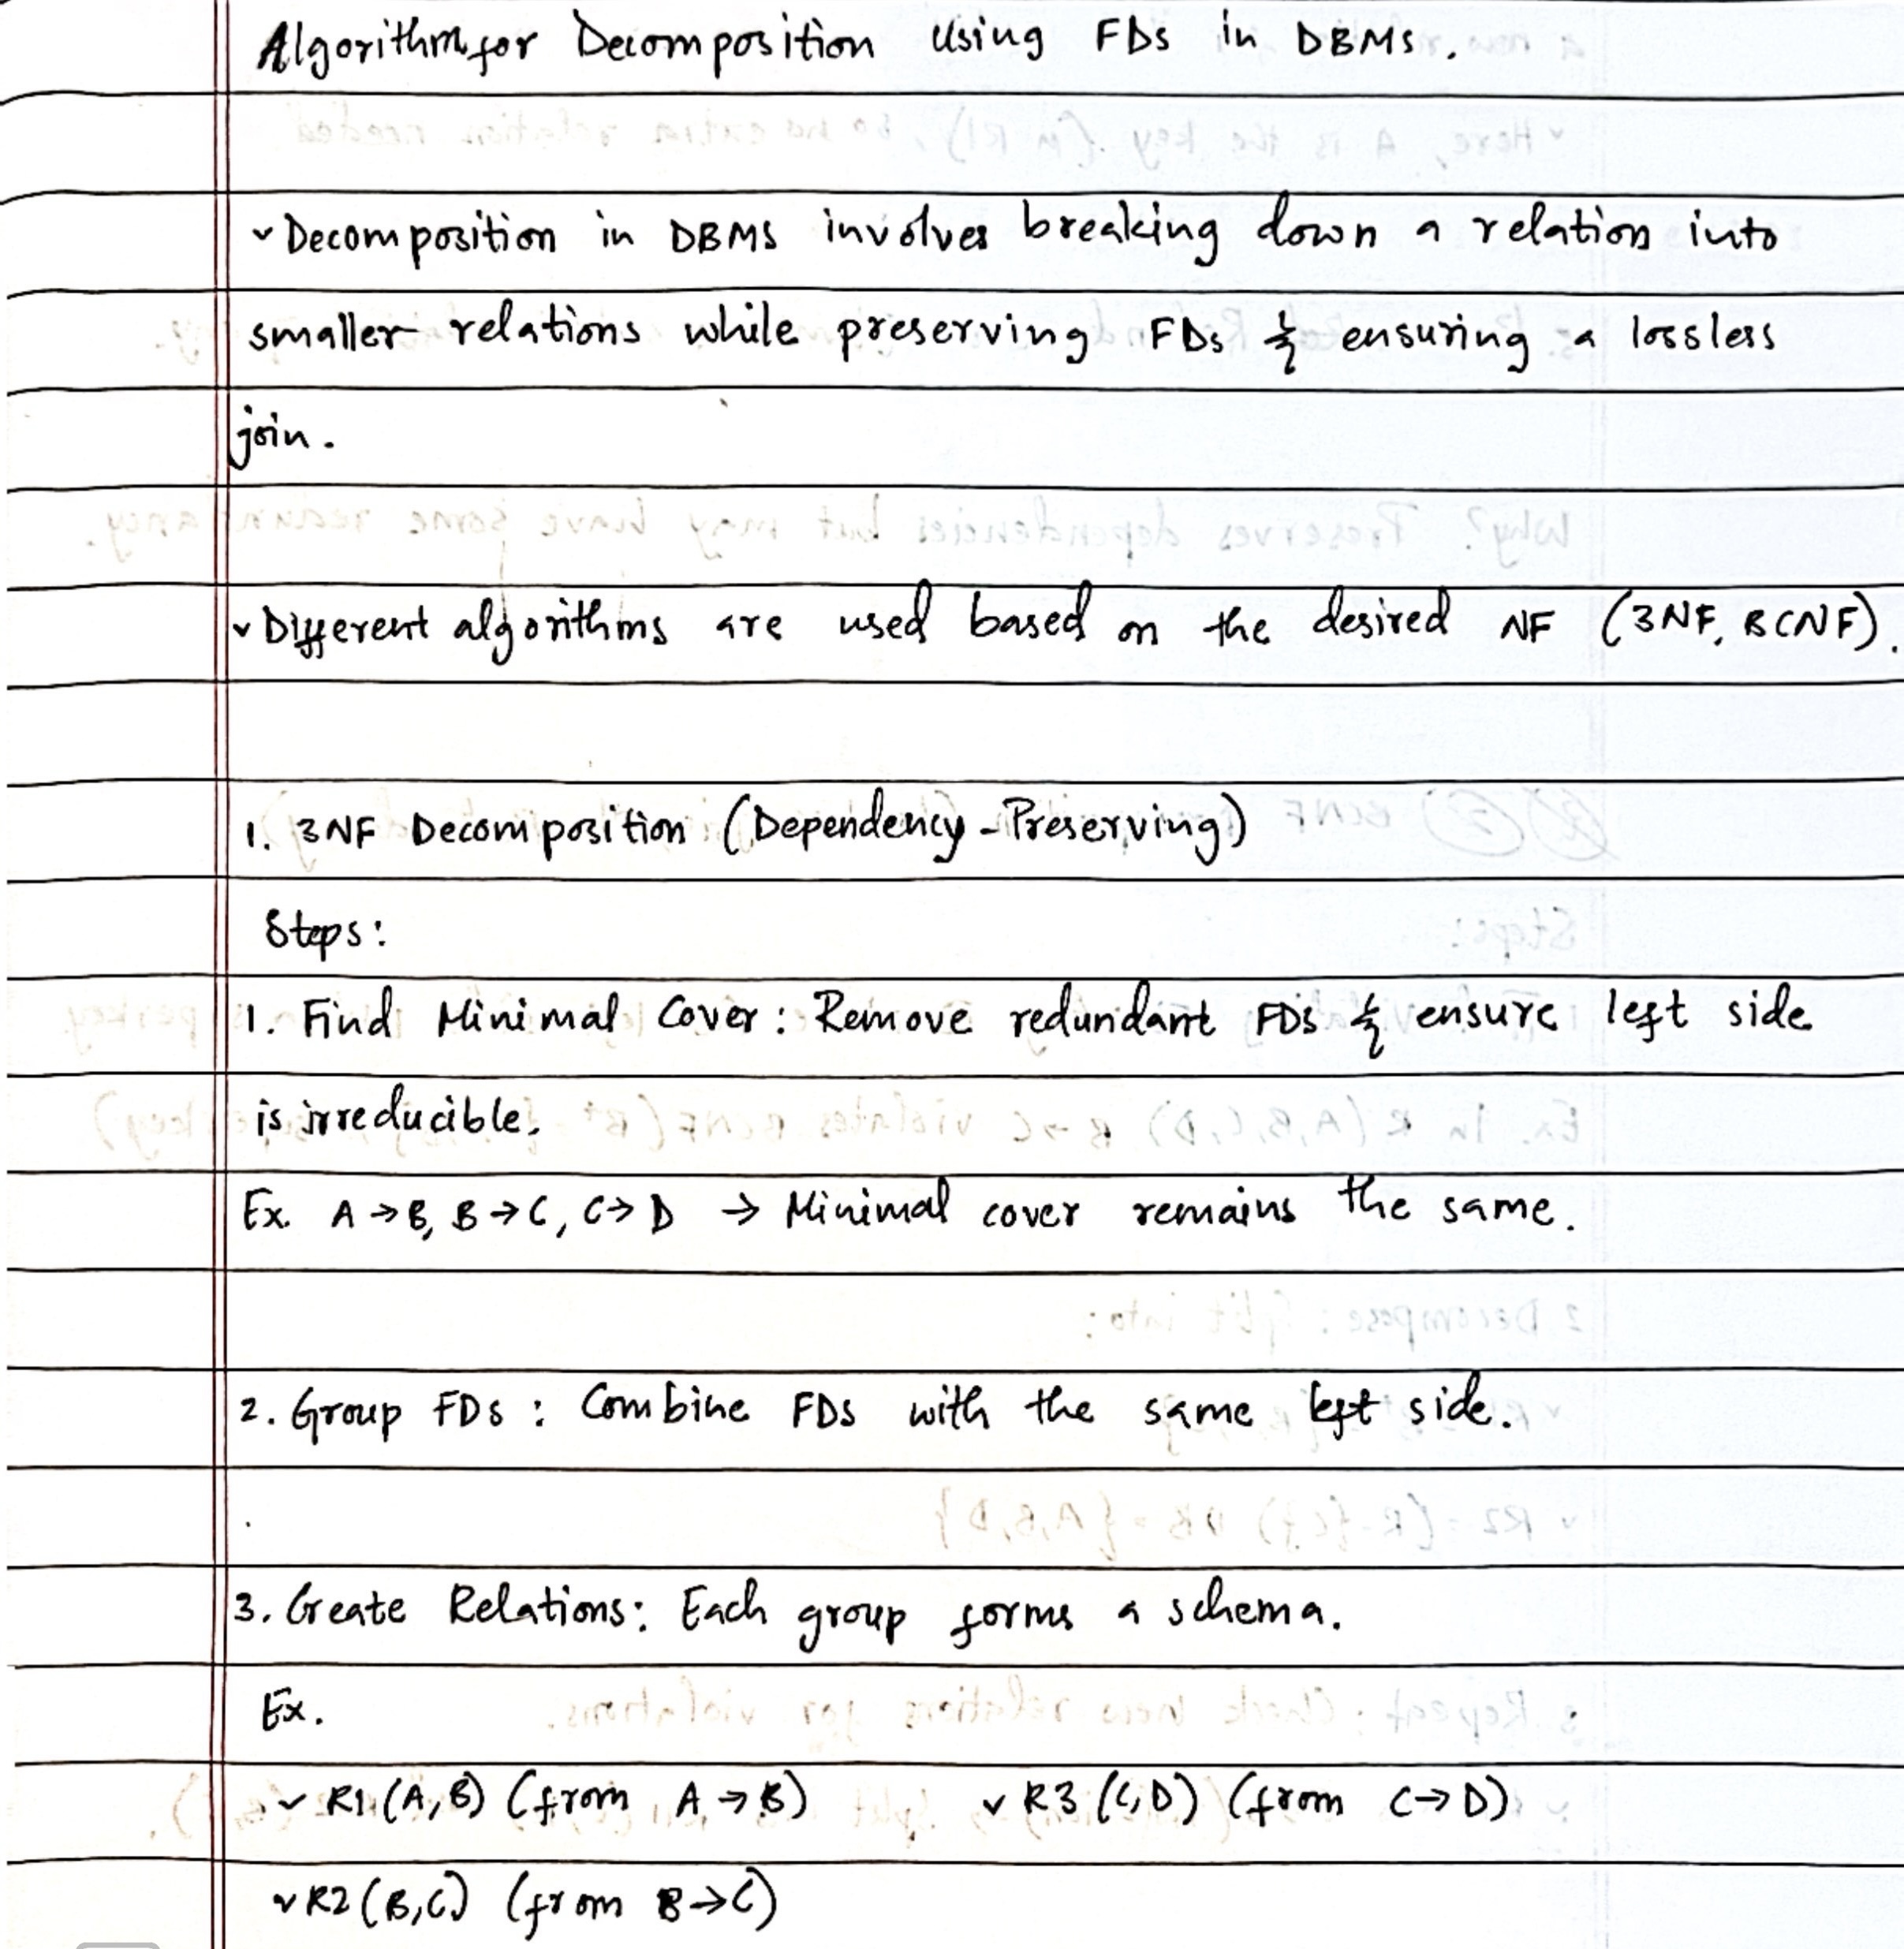 Algorithm for Decomposition Using FDs in DBMS.
✓ Decomposition in DBMS involves breaking down a relation into
smaller relations while preserving FDs & ensuring a lossless
join.
✓ Different algorithms are used based on the desired NF (3NF, BCNF).
1. 3NF Decomposition (Dependency-Preserving)
Steps:
1. Find Minimal Cover: Remove redundant FDs & ensure left side
is irreducible.
Ex. A → B, B → C, C → D → Minimal cover remains the same.
2. Group FDs: Combine FDs with the same left side.
3. Create Relations: Each group forms a schema.
Ex.
✓ R1 (A, B) (from A → B) ✓ R3 (C, D) (from C → D)
✓ R2 (B, C) (from B → C)